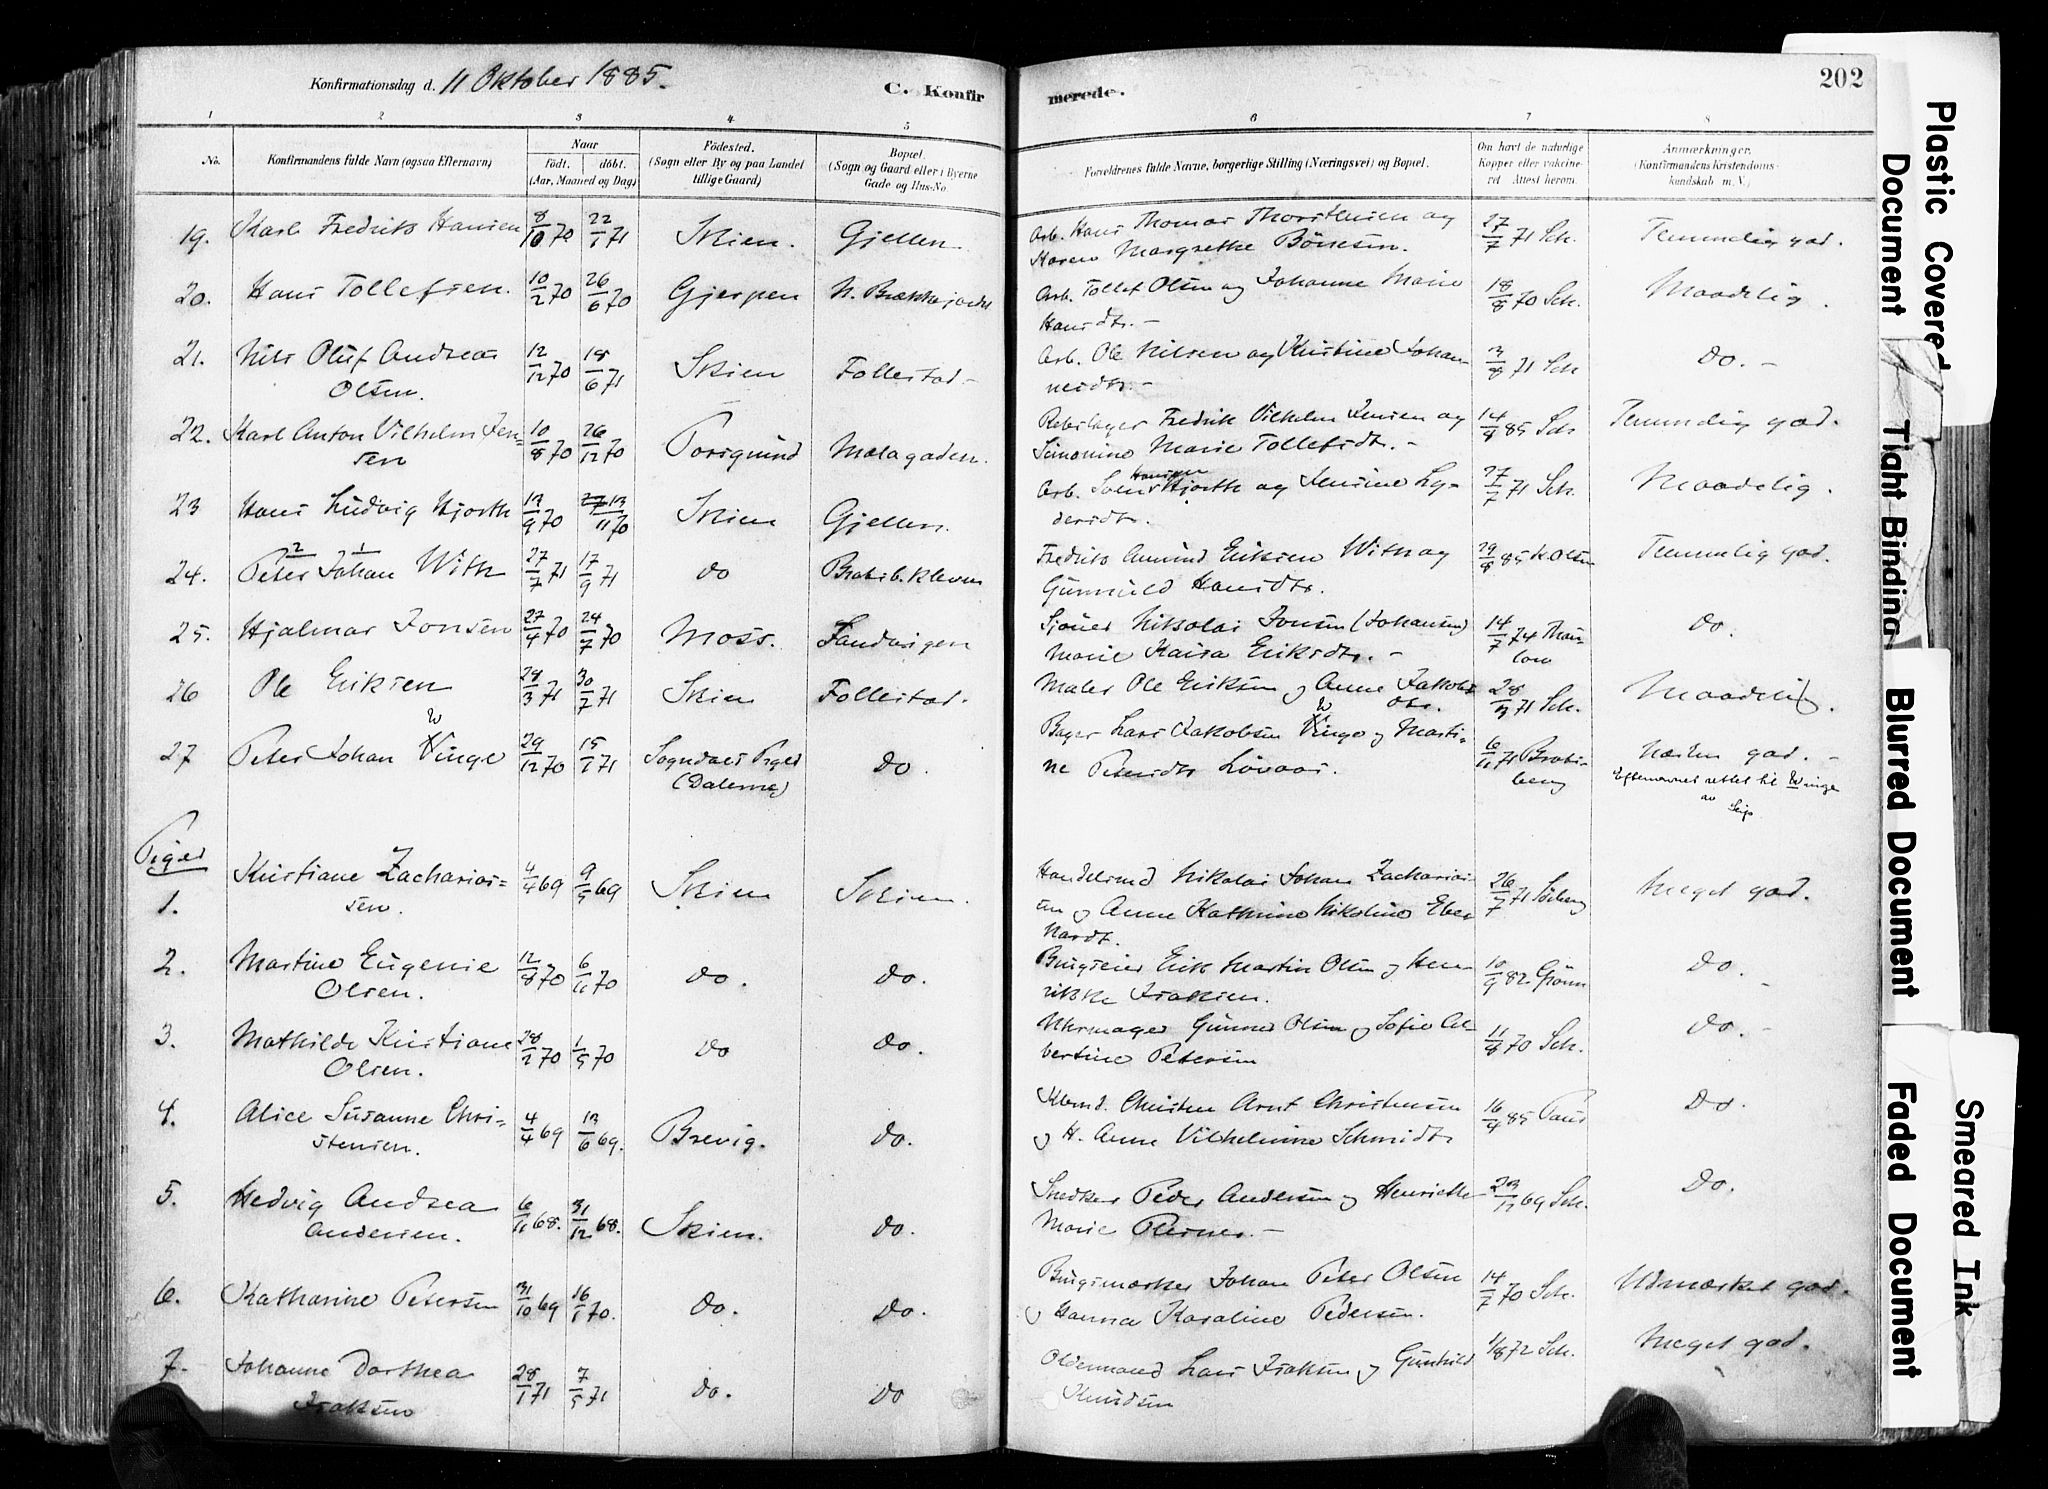 Konfirmationsdag d. 11 Oktober 1885.
C. Konfirmerede.
202
1 2 3 4 5 6 7 8
No.
Konfirmandens fulde Navn (ogsaa Efternavn)
Naar
født. døbt.
(Aar, Maaned og Dag)
Fødested.
(Sogn eller By og paa Landet
tillige Gaard)
Bopæl.
(Sogn og Gaard eller i Byerne
Gade og Hus-No.
Forældrenes fulde Navne, borgerlige Stilling (Næringsvei) og Bopæl.
Om havt de naturlige
Kopper eller vakcine-
ret Attest herom.
Anmærkninger.
(Konfirmandens Kristendoms-
kundskab m. V.)
19. Karl Fredrik Hansen 8/10 70 22/1 71 Skien. Gjellen Arb. Hans Thomas Thorstensen og 27/7 71 Sch. Temmelig god.
Karen Margrethe Börresen.
20. Hans Tollefsen. 10/2 70 26/6 70 Gjerpen N. Brækkejordet Arb. Tollef Olsen og Johanne Marie 18/8 70 Sch. Maadelig.
Hansdtr. -
21. Nils Oluf Andreas 12/12 70 18/6 71 Skien Follestad - Arb. Ole Nilsen og Kristine Johan- 3/8 71 Sch do. -
Olsen. nesdtr. -
22. Karl Anton Vilhelm Jen= 10/8 70 26/12 70 Porsgrund Mælagaden. Rebslager Fredrik Vilhelm Jensen og 14/9 85 Sch Temmelig god.
sen Simonine Marie Tollefsdtr. -
23 Hans Ludvig Hjorth 13/9 70 13/11 70 Skien Gjellen. Arb. Sven Hansen Hjorth og Jensine Ly- 27/7 71 Sch. Maadelig.
dersdtr.
24. Peter 2 Johan 1 With 27/7 71 17/9 71 do Bratsb. Kleven Fredrik Amund Eriksen With og 29/8 85 K Olsen Temmelig god.
Gunnuld Hansdtr.
25. Hjalmar Jonsen 27/4 70 24/7 70 Moss. Sandvigen Sjöuer Nikolai Jonsen (Johansen) 14/7 74 Thau- do.
Marie Kaisa Eriksdtr. - low
26 Ole Eriksen 28/3 71 30/7 71 Skien Follestad. Maler Ole Eriksen og Anne Jakobs 28/9 71 Sch. Maadelig.
dtr.
27 Peter Johan W Vinge 29/12 70 15/1 71 Sogndals Prgd Do. Bager Lars Jakobsen W Vinge og Marti- 6/11 71 Brats- Næsten god. -
(Dalerne) ne Petersdtr Lövaas. berg Efternavnet rettet til Winge
av Seip
Piger
1. Kristiane Zacharias= 4/4 69 9/5 69 Skien Skien. Handelsmd Nikolai Johan Zacharias 26/7 71 Sörberg Meget god.
sen. sen og Anne Kathrine Nikoline Eber
hardt.
2. Martine Eugenie 12/8 70 6/11 70 do. do. Brugseier Erik Martin Olsen og Hen- 10/9 82 Grönn do.
Olsen. rikke Isaksen.
3. Mathilde Kristiane 28/2 70 1/5 70 do do. Uhrmager Gunner Olsen og Sofie Al- 11/8 70 Sch. do. -
Olsen. bertine Petersen
4. Alice Susanne Chri- 4/4 69 13/6 69. Brevig. do. Kbmd. Christen Arnt Christensen 16/9 85 Paus Do.
stensen. og H. Anne Vilhelmine Schmidt
5. Hedvig Andrea 6/11 68. 31/12 68. Skien. do. Snedker Peder Andersen og Henriette 29/11 69 Sch. Do.
Andersen. Marie Plesner. -
6. Katharine Petersen 31/10 69 16/1 70. do. Do. Brugsmæsker Johan Peter Olsen 14/7 70 Sch. Udmærket god.
og Hanna Karoline Pedersen.
7. Johanne Dorthea 28/1 71 7/5 71 do. Do Oldermand Lars Isaksen og Gunhild 1/8 72 Sch. Meget god.
Isaksen Knudsen
Plastic Covered Document
Tight Binding
Blurred Document
Faded Document
Smeared Ink